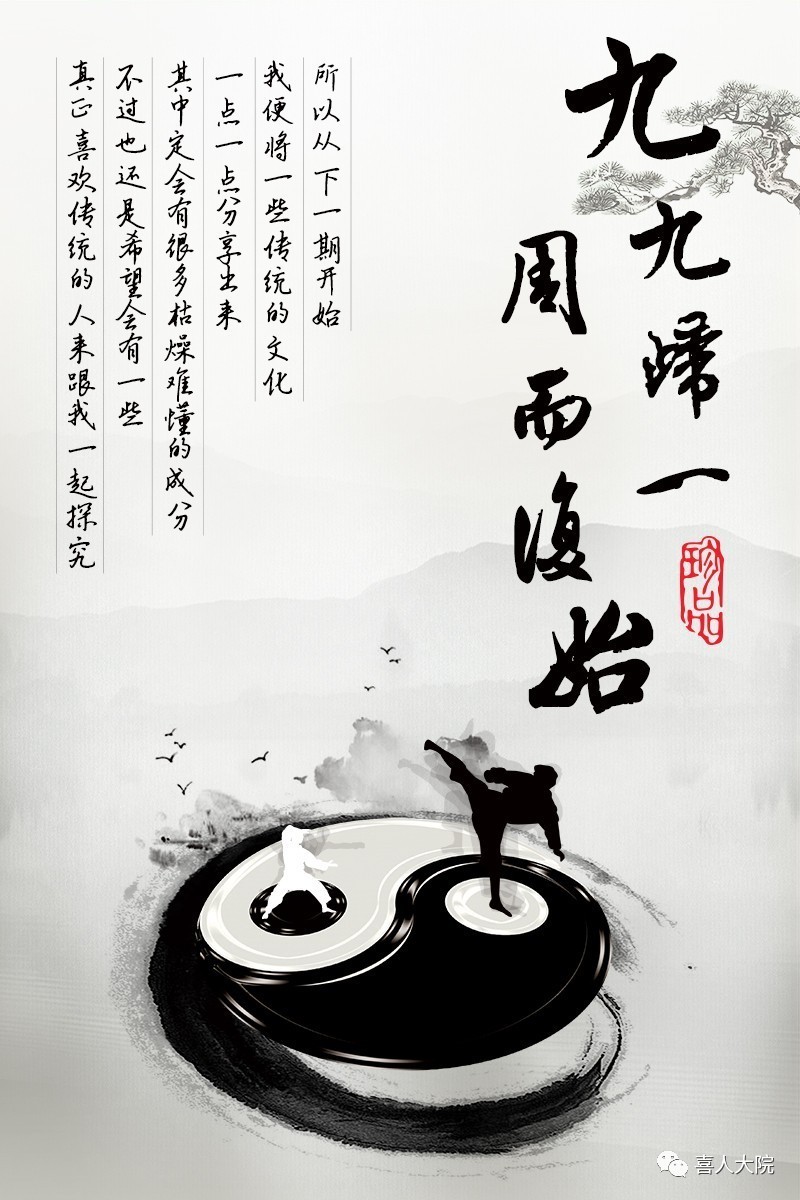 九九歸一
周而復始
珍品
所以从下一期开始
我便将一些传统的文化
一点一点分享出来
其中定会有很多枯燥难懂的成分
不过也还是希望会有一些
真正喜欢传统的人来跟我一起探究
喜人大院